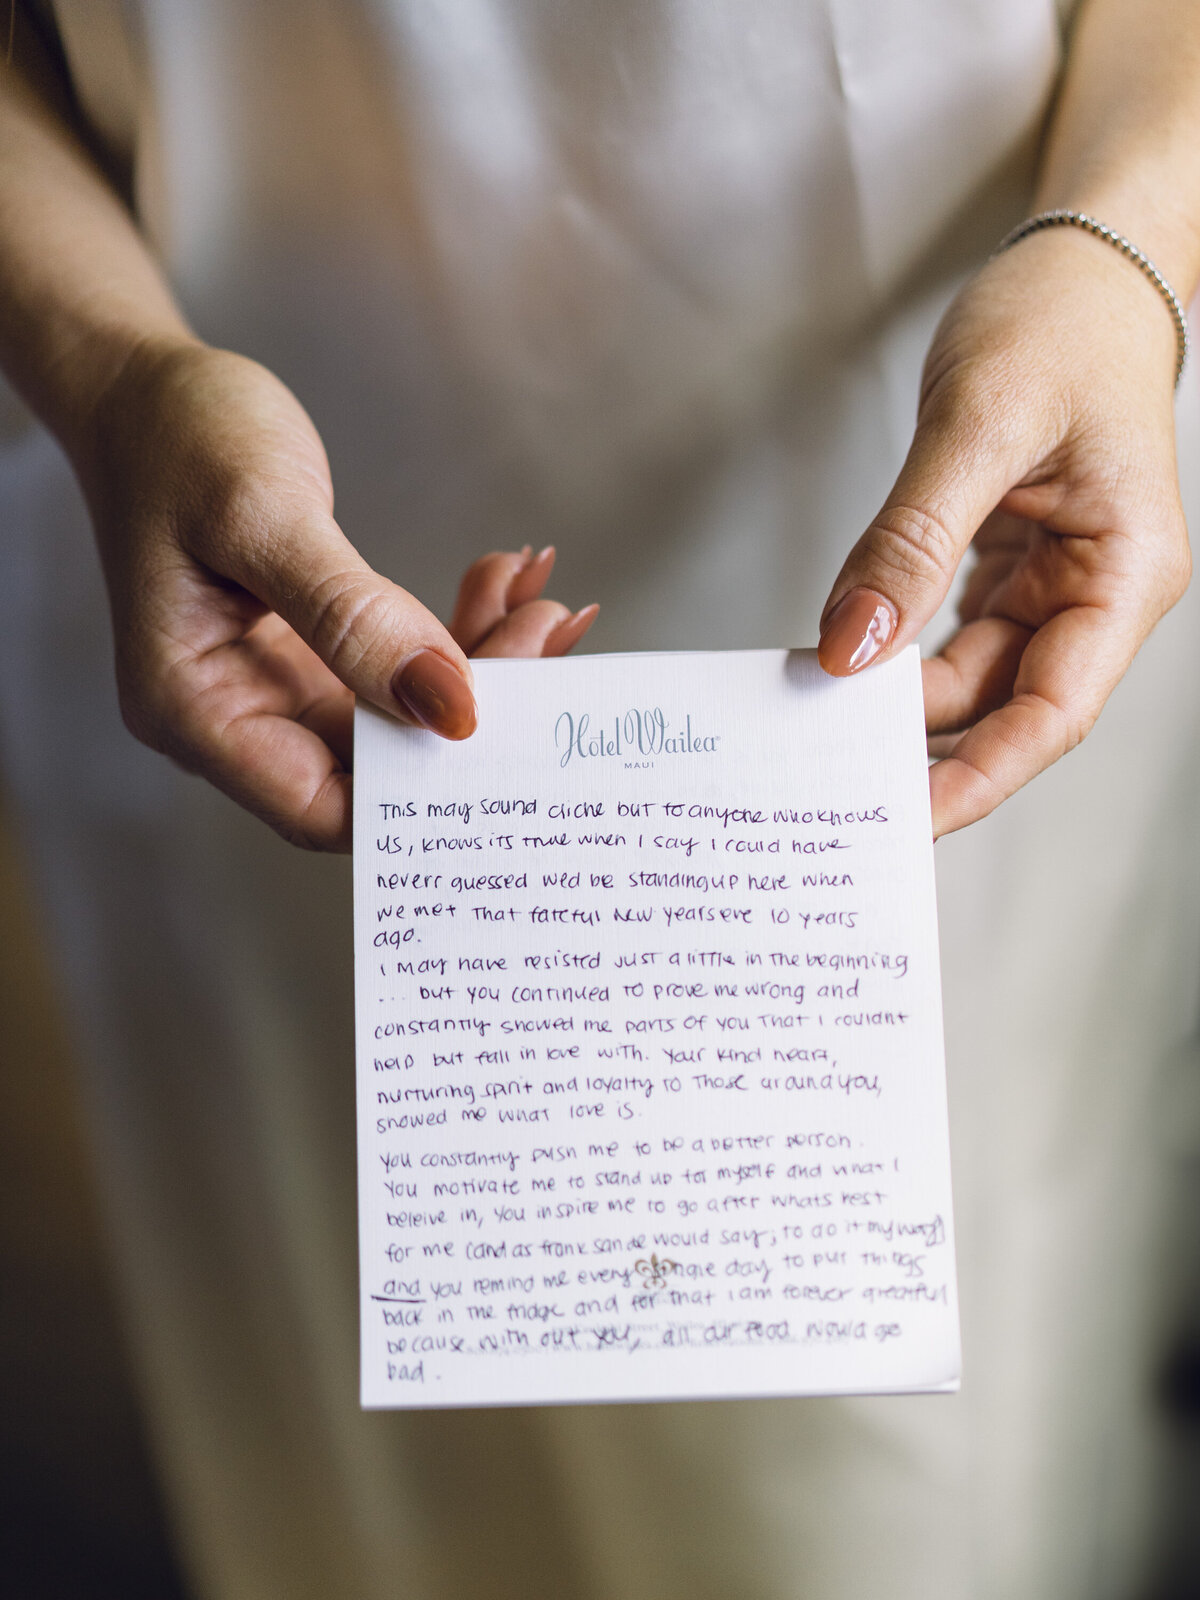 Hotel Wailea
MAUI
This may sound cliche but to anyone who knows
us, knows its true when I say I could have
neverr guessed wed be standing up here when
we met that fateful New years eve 10 years
ago.
I may have resisted just a little in the beginning
... but you continued to prove me wrong and
constantly showed me parts of you that I couldnt
help but fall in love with. Your kind heart,
nurturing spirit and loyalty to those around you,
showed me what love is.
You constantly push me to be a better person.
You motivate me to stand up for myself and what I
beleive in, you inspire me to go after whats best
for me (and as frank would say, to do it my way)
and you remind me every single day to put things
back in the fridge and for that I am forever greatful
because with out you, all our food would go
bad.